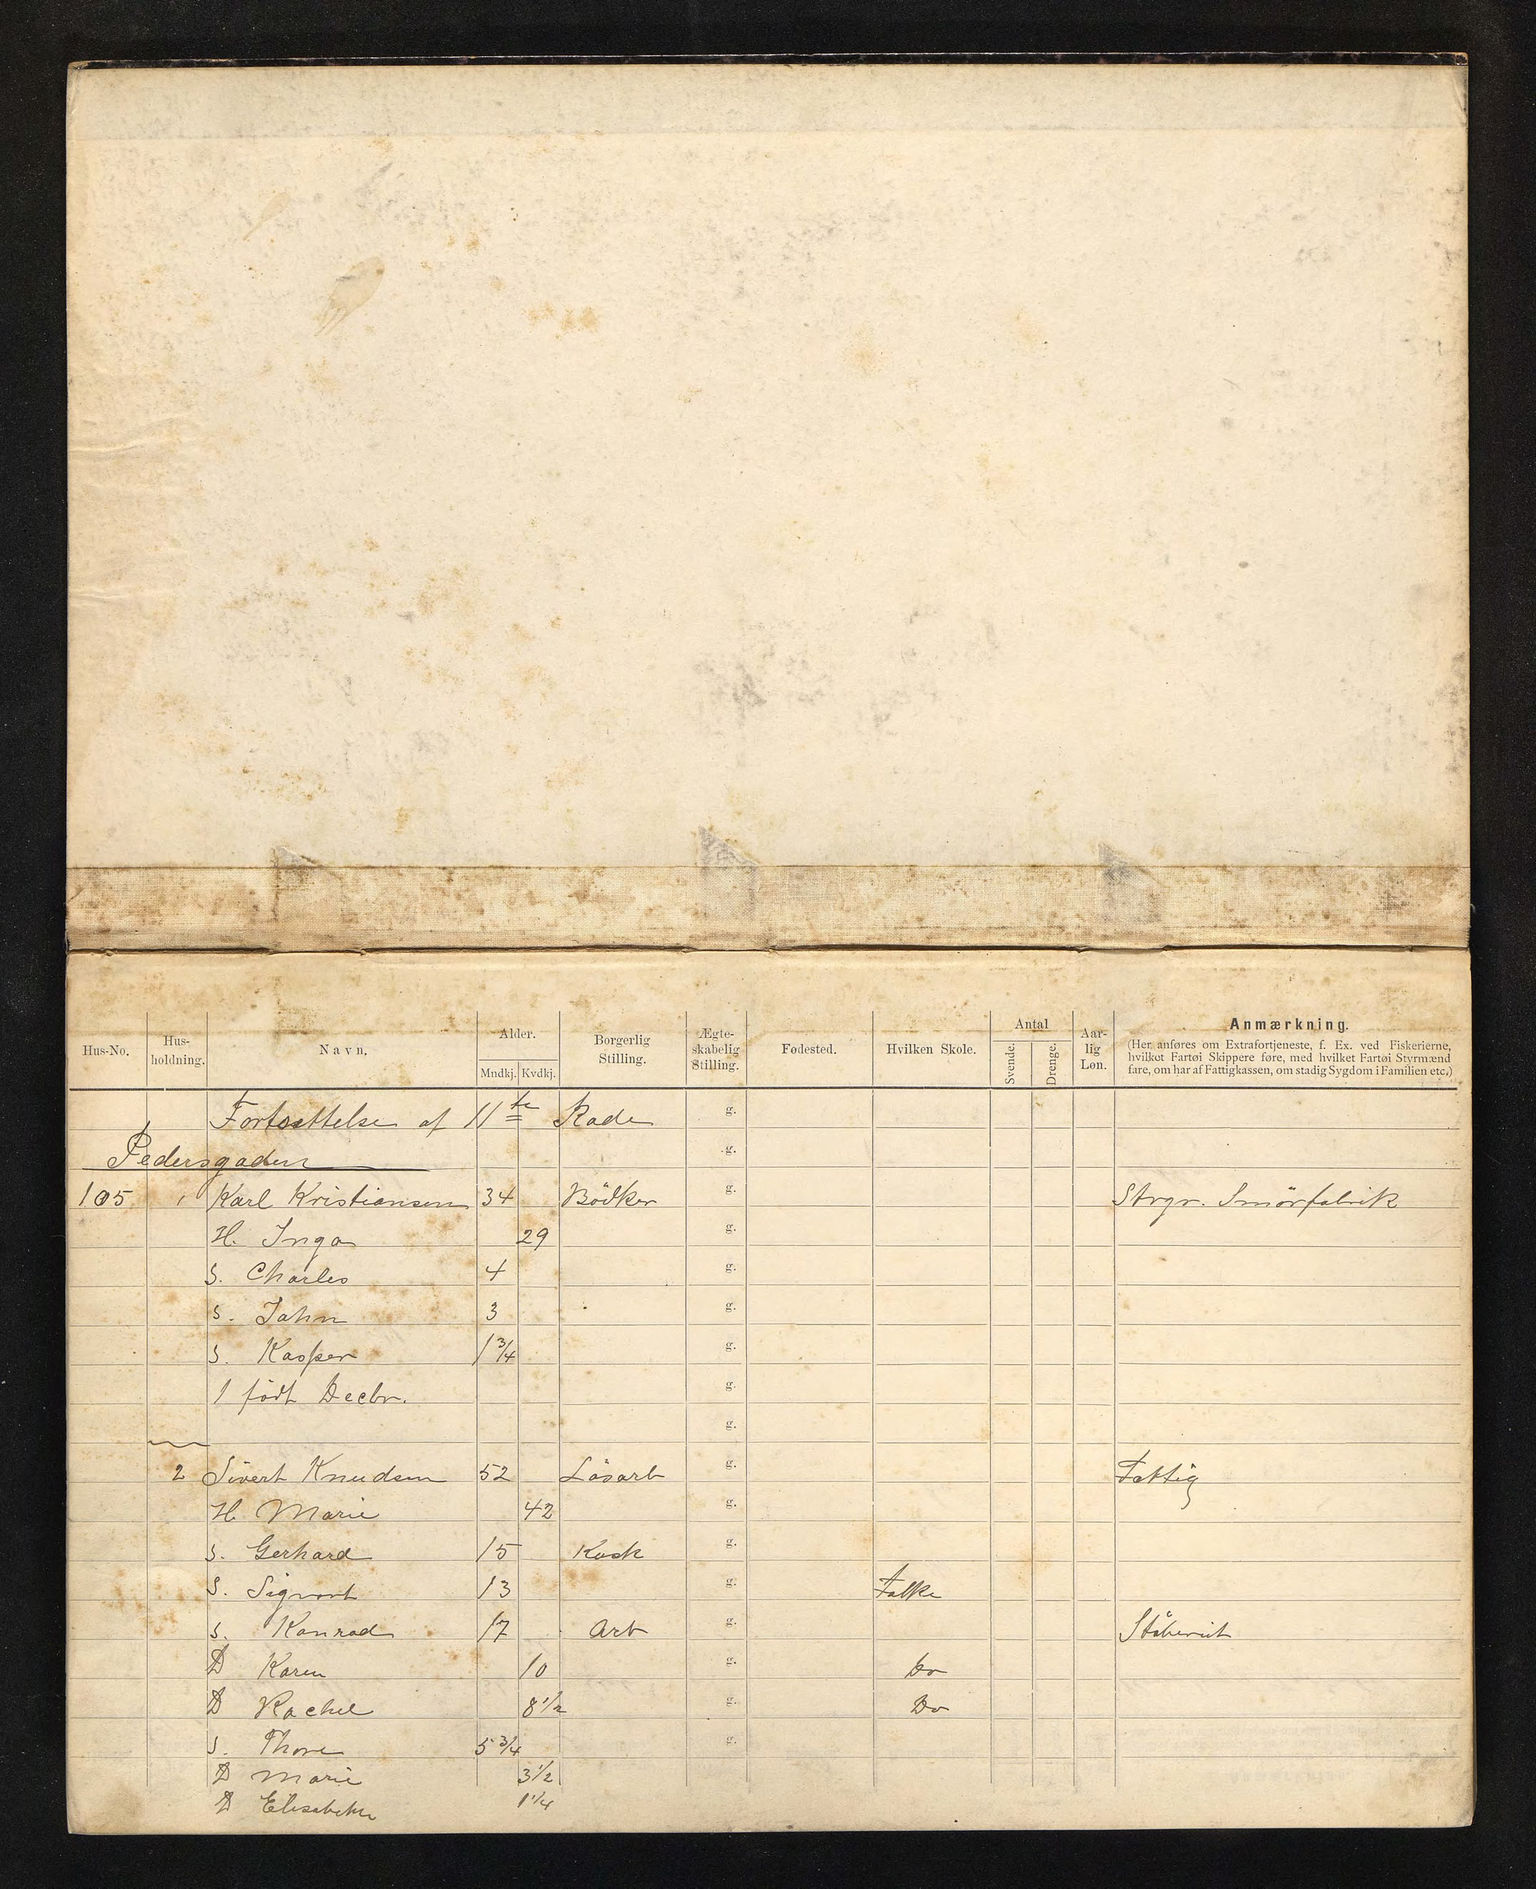 Hus-No. Hus-holdning. Navn. Alder. Mndkj. Kvdkj. Borgerlig Stilling. Ægte-skabelig Stilling. Fødested. Hvilken Skole. Antal Svende. Drenge. Aar-lig Løn. Anmærkning.
(Her anføres om Extrafortjeneste, f. Ex. ved Fiskerierne,
hvilket Fartøi Skippere føre, med hvilket Fartøi Styrmænd
fare, om har af Fattigkassen, om stadig Sygdom i Familien etc.)
Fortsættelse af 11te Rode g.
Pedersgaden g.
105 1 Karl Kristiansen 34 Bödker g. Stvgr. Smörfabrik
H. Inga 29 g.
S. Charles 4 g.
S. John 3 g.
S. Kasper 1 3/4 g.
1 födt Decbr. g.
g.
2 Sivert Knudsen 52 Lösarb g. Fattig
H. Marie 42 g.
S. Gerhard 15 Kock g.
S. Sigvart 13 g. Folke
S. Konrad 17 Arb g.
D Karen 10 g. Do
D Rachel 8 1/2 g. Do
S. Thore 5 3/4 g.
D Marie 3 1/2
D Elisabeth 1 1/4